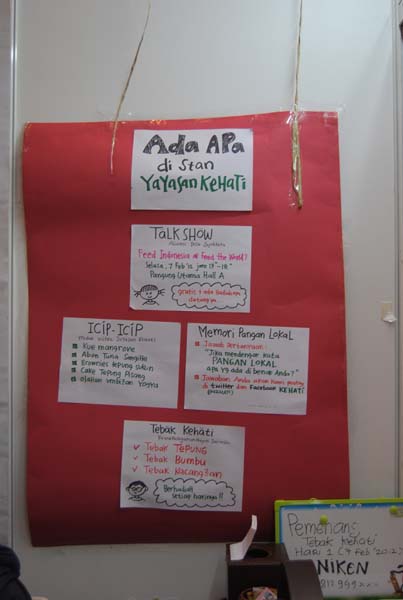 Ada APa
di Stan
YAYASAN KEHATI
TALKSHOW
Feed Indonesia or Feed the World?
Selasa, 7 Feb
Panggung Utama Hall A
gratis + ada hadiahnya
datang ya..
ICIP-ICIP
Kue mangrove
Abon Tuna
Brownies tepung sukun
Cake Tepung Pisang
olahan umbi
MEMORI PANGAN LOKAL
Jawab Pertanyaan:
"Jika mendengar kata
PANGAN LOKAL
apa yg ada di benak Anda?"
Jawaban Anda akan kami posting
di twitter dan Facebook KEHATI
Tebak Kehati
Tebak TEPUNG
Tebak BUMBU
Tebak Kacang2an
Berhadiah
setiap harinya!!
Pemenang
Tebak Kehati
Hari 1 (7 Feb 2012)
NIKEN